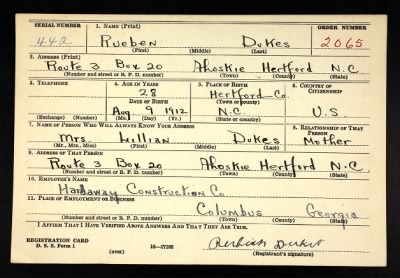 SERIAL NUMBER 1. NAME (Print) ORDER NUMBER
442 Rueben Dukes 2065
(First) (Middle) (Last)
2. ADDRESS (Print)
Route 3 Box 20 Ahoskie Hertford N.C.
(Number and street or R. F. D. number) (Town) (County) (State)
3. TELEPHONE 4. AGE IN YEARS 5. PLACE OF BIRTH 6. COUNTRY OF CITIZENSHIP
28 Hertford Co.
DATE OF BIRTH (Town or county)
Aug 9 1912 N.C. U.S.
(Exchange) (Number) (Mo.) (Day) (Yr.) (State or country)
7. NAME OF PERSON WHO WILL ALWAYS KNOW YOUR ADDRESS 8. RELATIONSHIP OF THAT PERSON
Mrs. Lillian Dukes Mother
(Mr., Mrs., Miss) (First) (Middle) (Last)
9. ADDRESS OF THAT PERSON
Route 3 Box 20 Ahoskie Hertford N.C.
(Number and street or R. F. D. number) (Town) (County) (State)
10. EMPLOYER'S NAME
Hardaway Construction Co
11. PLACE OF EMPLOYMENT OR BUSINESS
Columbus Georgia
(Number and street or R. F. D. number) (Town) (County) (State)
I AFFIRM THAT I HAVE VERIFIED ABOVE ANSWERS AND THAT THEY ARE TRUE.
REGISTRATION CARD
D. S. S. Form 1 (over) 16—17105 (Registrant's signature)